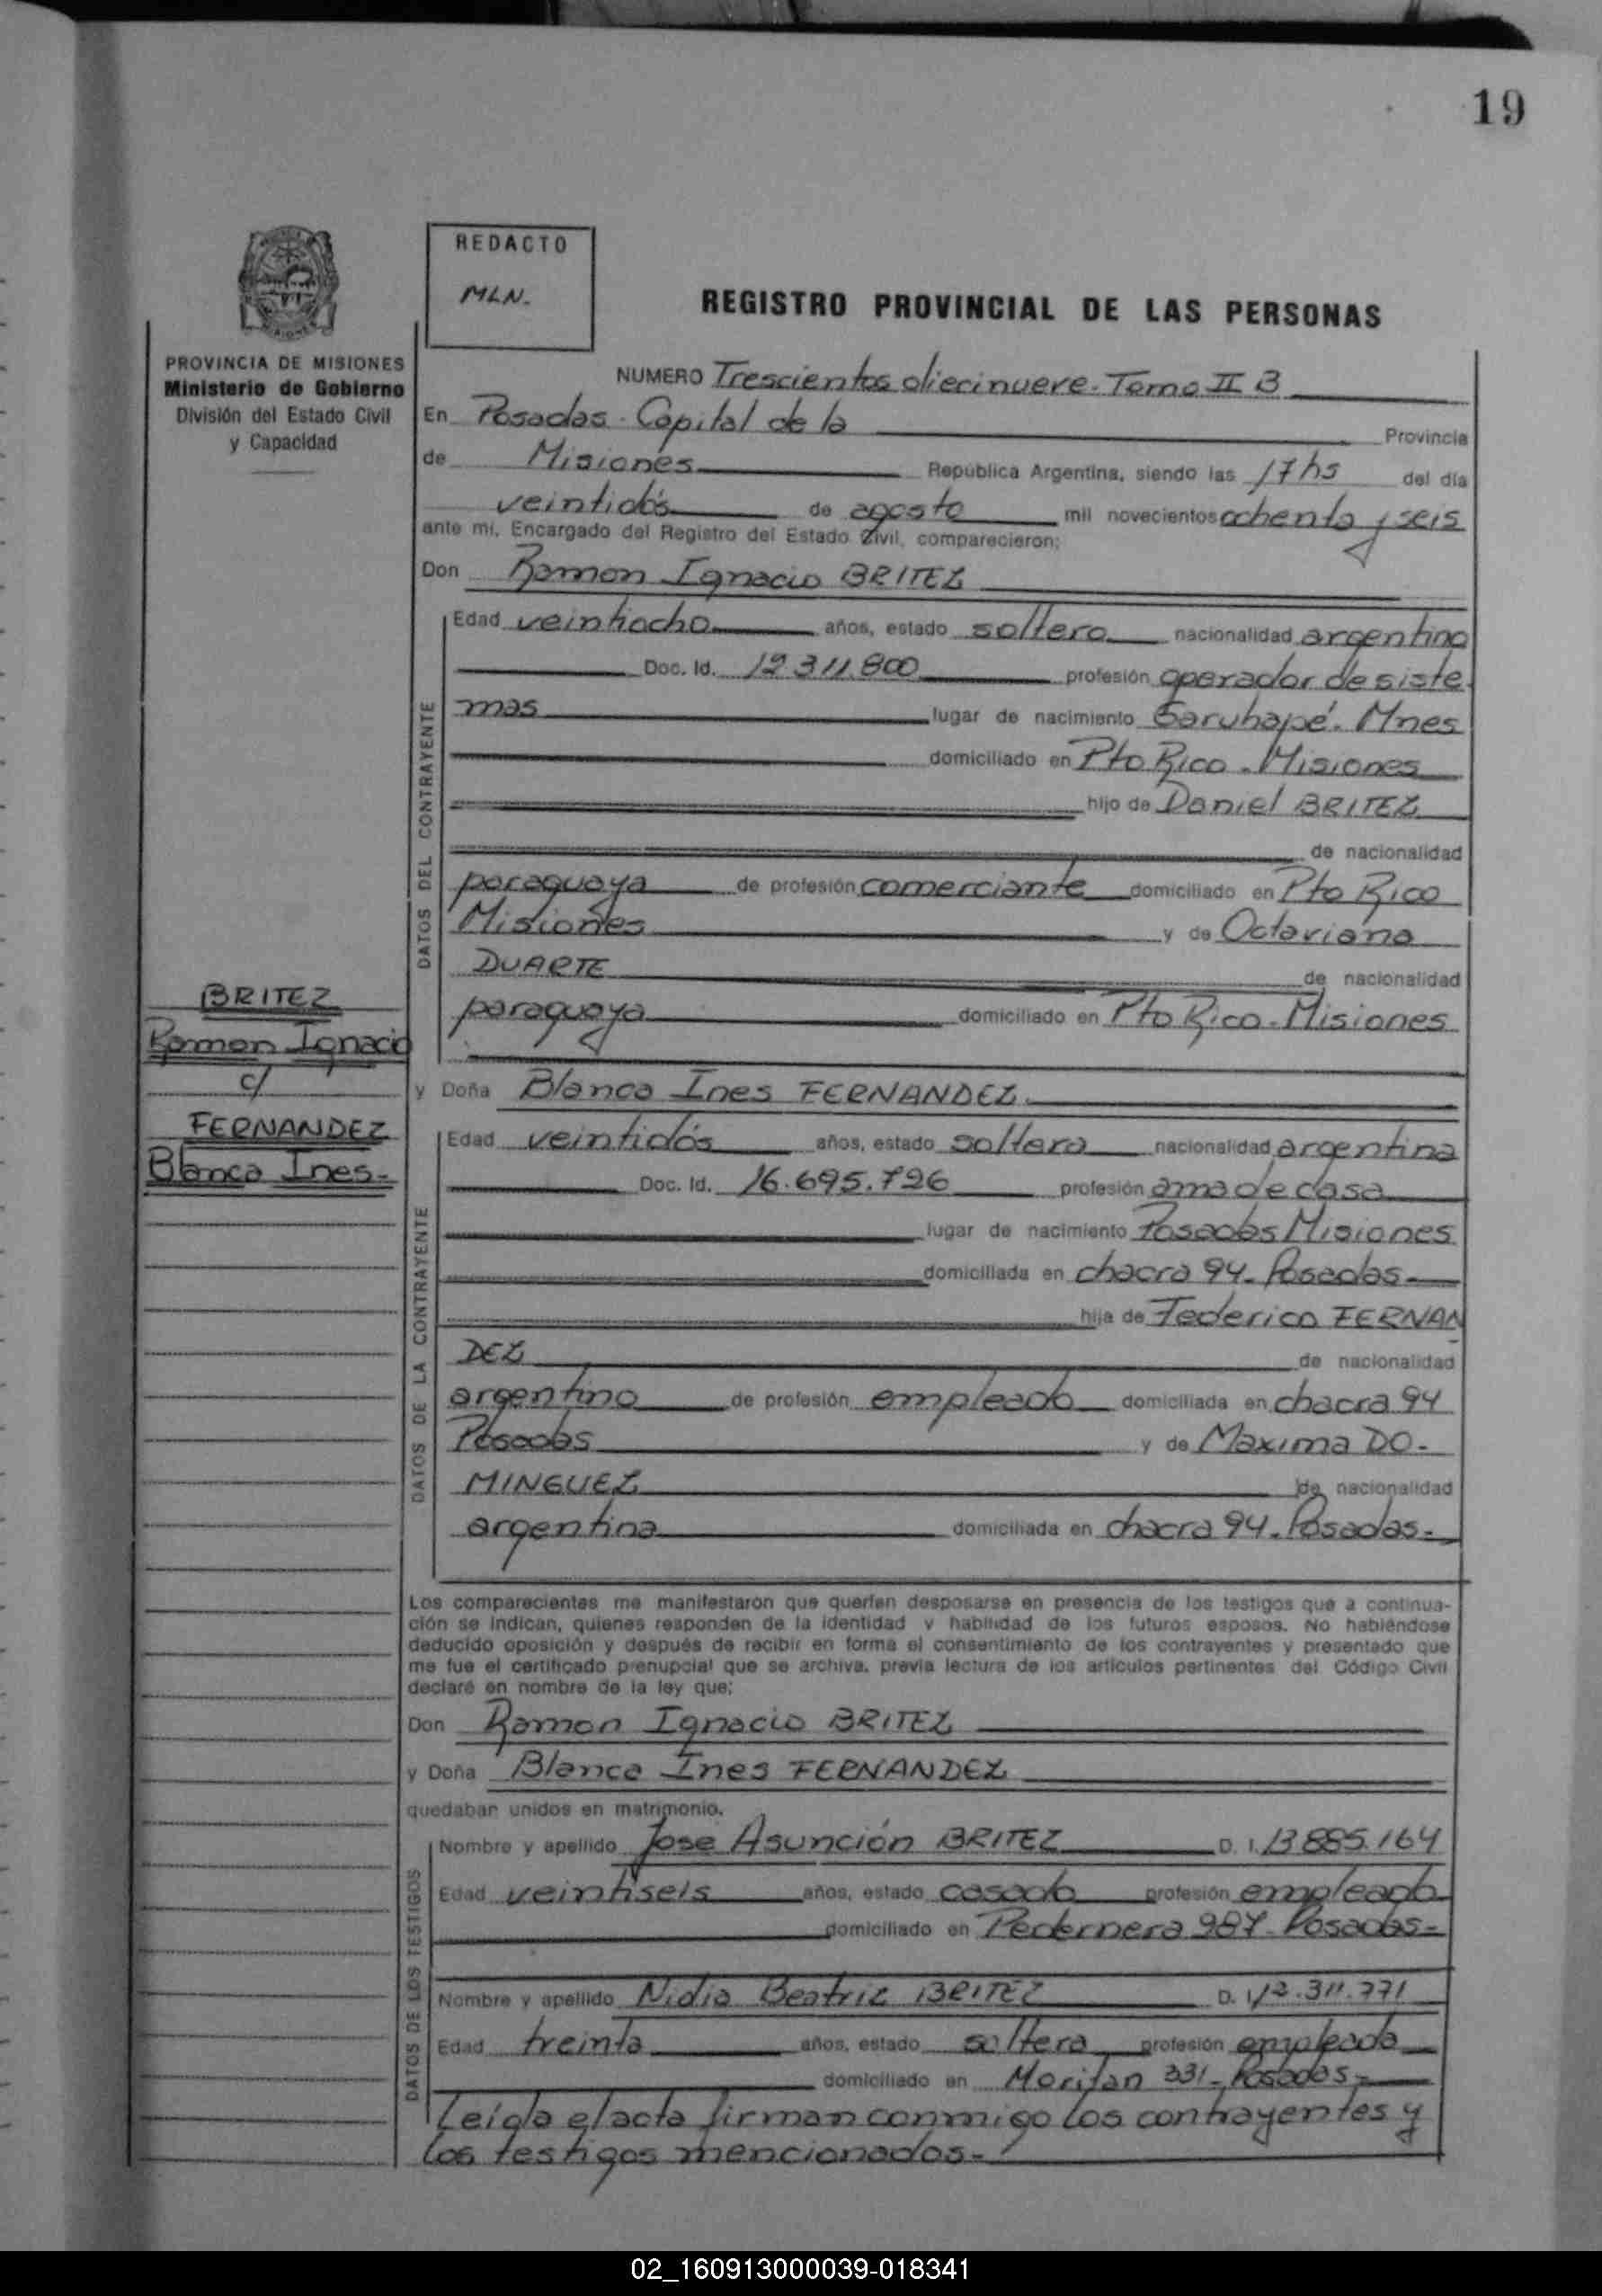 19
REDACTO
MLN.
REGISTRO PROVINCIAL DE LAS PERSONAS
PROVINCIA DE MISIONES
Ministerio de Gobierno
División del Estado Civil
y Capacidad
NUMERO Trescientos diecinueve - Tomo II B
En Posadas - Capital de la Provincia
de Misiones República Argentina, siendo las 17 hs del día
veintidós de agosto mil novecientos ochenta y seis
ante mí, Encargado del Registro del Estado Civil, comparecieron:
Don Ramon Ignacio BRITEZ
DATOS DEL CONTRAYENTE
Edad veintiocho años, estado soltero nacionalidad argentino
Doc. Id. 12.311.800 profesión operador de siste
mas lugar de nacimiento Garuhapé - Mnes
domiciliado en Pto Rico - Misiones
hijo de Daniel BRITEZ
de nacionalidad
paraguaya de profesión comerciante domiciliado en Pto Rico
Misiones y de Octaviana
DUARTE de nacionalidad
paraguaya domiciliado en Pto Rico - Misiones
BRITEZ
Ramon Ignacio
c/
FERNANDEZ
Blanca Ines -
y Doña Blanca Ines FERNANDEZ
DATOS DE LA CONTRAYENTE
Edad veintidós años, estado soltera nacionalidad argentina
Doc. Id. 16.695.726 profesión ama de casa
lugar de nacimiento Posadas Misiones
domiciliada en chacra 94 - Posadas -
hija de Federico FERNAN
DEZ de nacionalidad
argentino de profesión empleado domiciliada en chacra 94
Posadas y de Maxima DO-
MINGUEZ de nacionalidad
argentina domiciliada en chacra 94 - Posadas -
Los comparecientes me manifestaron que querían desposarse en presencia de los testigos que a continua-
ción se indican, quienes responden de la identidad y habilidad de los futuros esposos. No habiéndose
deducido oposición y después de recibir en forma el consentimiento de los contrayentes y presentado que
me fue el certificado prenupcial que se archiva, previa lectura de los artículos pertinentes del Código Civil
declaré en nombre de la ley que:
Don Ramon Ignacio BRITEZ
y Doña Blanca Ines FERNANDEZ
quedaban unidos en matrimonio.
DATOS DE LOS TESTIGOS
Nombre y apellido Jose Asunción BRITEZ D. I. 13.885.164
Edad veintiseis años, estado casado profesión empleado
domiciliado en Pedernera 987 - Posadas -
Nombre y apellido Nidia Beatriz BRITEZ D. I. 12.311.771
Edad treinta años, estado soltera profesión empleada
domiciliado en 331 - Posadas -
Leída el acta firman conmigo los contrayentes y
los testigos mencionados -
02_160913000039-018341